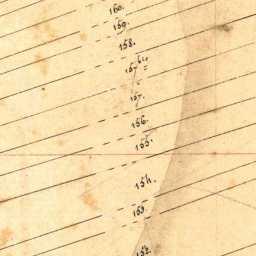 160.
159.
158.
157 bis
157.
156.
155.
154.
153.
152.